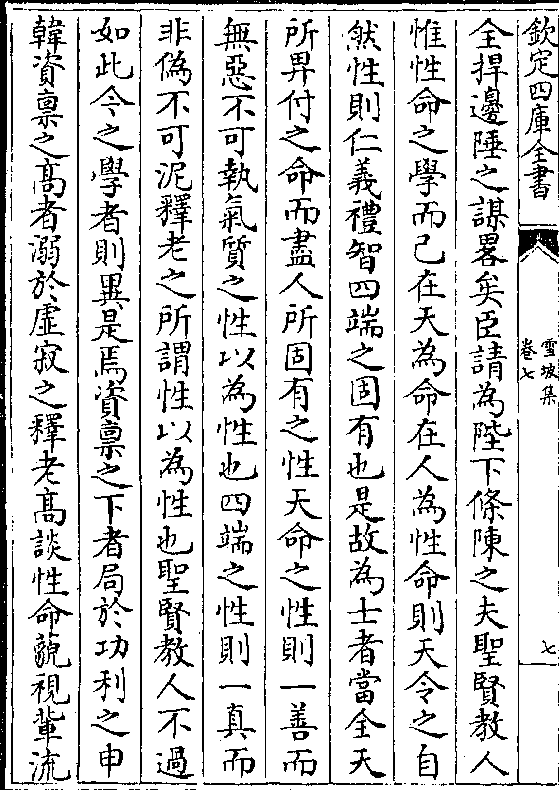 欽定四庫全書
雪坡集
卷七
七
全捍邊陲之謀畧矣臣請為陛下條陳之夫聖賢教人
惟性命之學而已在天為命在人為性命則天令之自
然性則仁義禮智四端之固有也是故為士者當全天
所畀付之命而盡人所固有之性天命之性則一善而
無惡不可執氣質之性以為性也四端之性則一真而
非偽不可泥釋老之所謂性以為性也聖賢教人不過
如此今之學者則異是焉資稟之下者局於功利之申
韓資稟之髙者溺於虛寂之釋老髙談性命藐視輩流